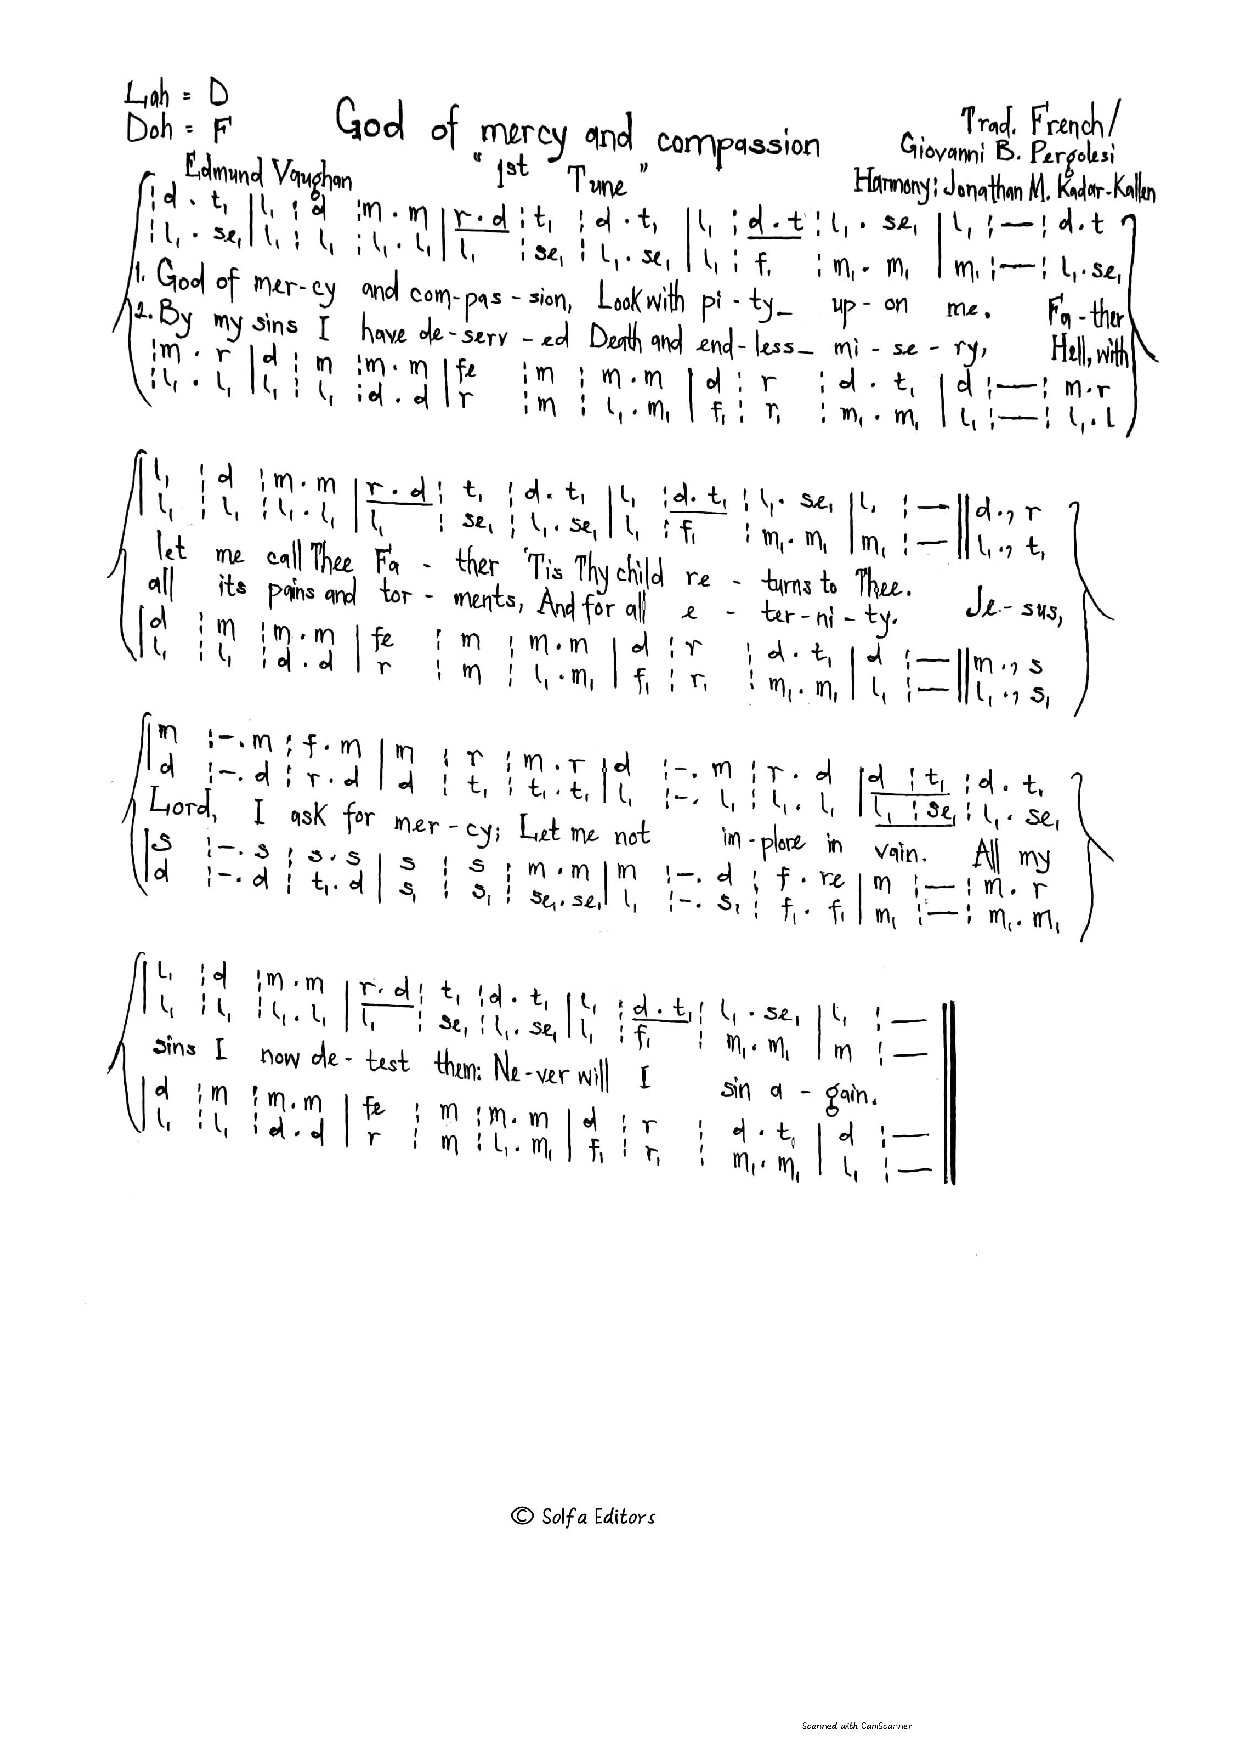 Lah = D
Doh = F
God of mercy and compassion
"1st Tune"
Trad. French/
Giovanni B. Pergolesi
Harmony: Jonathan M. Kadar-Kallen
Edmund Vaughan
:d . t₁ | l₁ : d : m . m | r . d : t₁ : d . t₁ | l₁ : d . t : l₁ . se₁ | l₁ : — : d . t
: l₁ . se₁ | l₁ : l₁ : l₁ . l₁ | l₁ : se₁ : l₁ . se₁ | l₁ : f₁ : m₁ . m₁ | m₁ : — : l₁ . se₁
1. God of mer-cy and com-pas-sion, Look with pi-ty_ up-on me. Fa-ther
2. By my sins I have de-serv-ed Death and end-less_ mi-se-ry, Hell, with
: m . r | d : m : m . m | fe : m : m . m | d : r : d . t₁ | d : — : m . r
: l₁ . l₁ | l₁ : l₁ : d . d | r : m : l₁ . m₁ | f₁ : r₁ : m₁ . m₁ | l₁ : — : l₁ . l
l₁ : d : m . m | r . d : t₁ : d . t₁ | l₁ : d . t₁ : l₁ . se₁ | l₁ : — || d . , r
l₁ : l₁ : l₁ . l₁ | l₁ : se₁ : l₁ . se₁ | l₁ : f₁ : m₁ . m₁ | m₁ : — || l₁ . , t₁
let me call Thee Fa-ther 'Tis Thy child re-turns to Thee.
all its pains and tor-ments, And for all e-ter-ni-ty. Je-sus,
d : m : m . m | fe : m : m . m | d : r : d . t₁ | d : — || m . , s
l₁ : l₁ : d . d | r : m : l₁ . m₁ | f₁ : r₁ : m₁ . m₁ | l₁ : — || l₁ . , s₁
m : - . m : f . m | m : r : m . r | d : - . m : r . d | d : t₁ : d . t₁
d : - . d : r . d | d : t₁ : t₁ . t₁ | l₁ : - . l₁ : l₁ . l₁ | l₁ : se₁ : l₁ . se₁
Lord, I ask for mer-cy; Let me not im-plore in vain. All my
s : - . s : s . s | s : s : m . m | m : - . d : f . re | m : — : m . r
d : - . d : t₁ . d | s₁ : s₁ : se₁ . se₁ | l₁ : - . s₁ : f₁ . f₁ | m₁ : — : m₁ . m₁
l₁ : d : m . m | r . d : t₁ : d . t₁ | l₁ : d . t₁ : l₁ . se₁ | l₁ : —
l₁ : l₁ : l₁ . l₁ | l₁ : se₁ : l₁ . se₁ | l₁ : f₁ : m₁ . m₁ | m : —
sins I now de-test them: Ne-ver will I sin a-gain.
d : m : m . m | fe : m : m . m | d : r : d . t₁ | d : —
l₁ : l₁ : d . d | r : m : l₁ . m₁ | f₁ : r₁ : m₁ . m₁ | l₁ : —
© Solfa Editors
Scanned with CamScanner